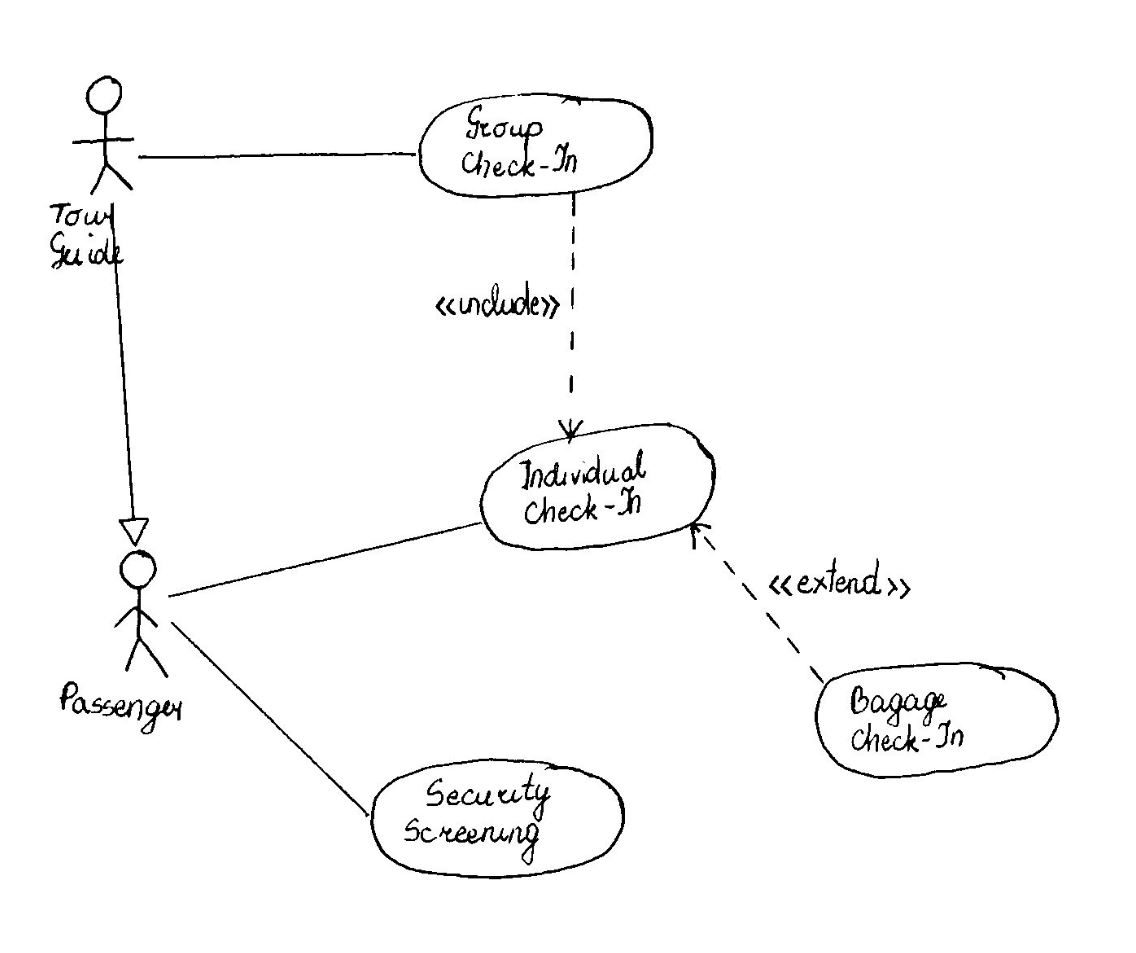 Group
Check-In
Tour
Guide
<<include>>
Individual
Check-In
<<extend>>
Passenger
Bagage
Check-In
Security
Screening